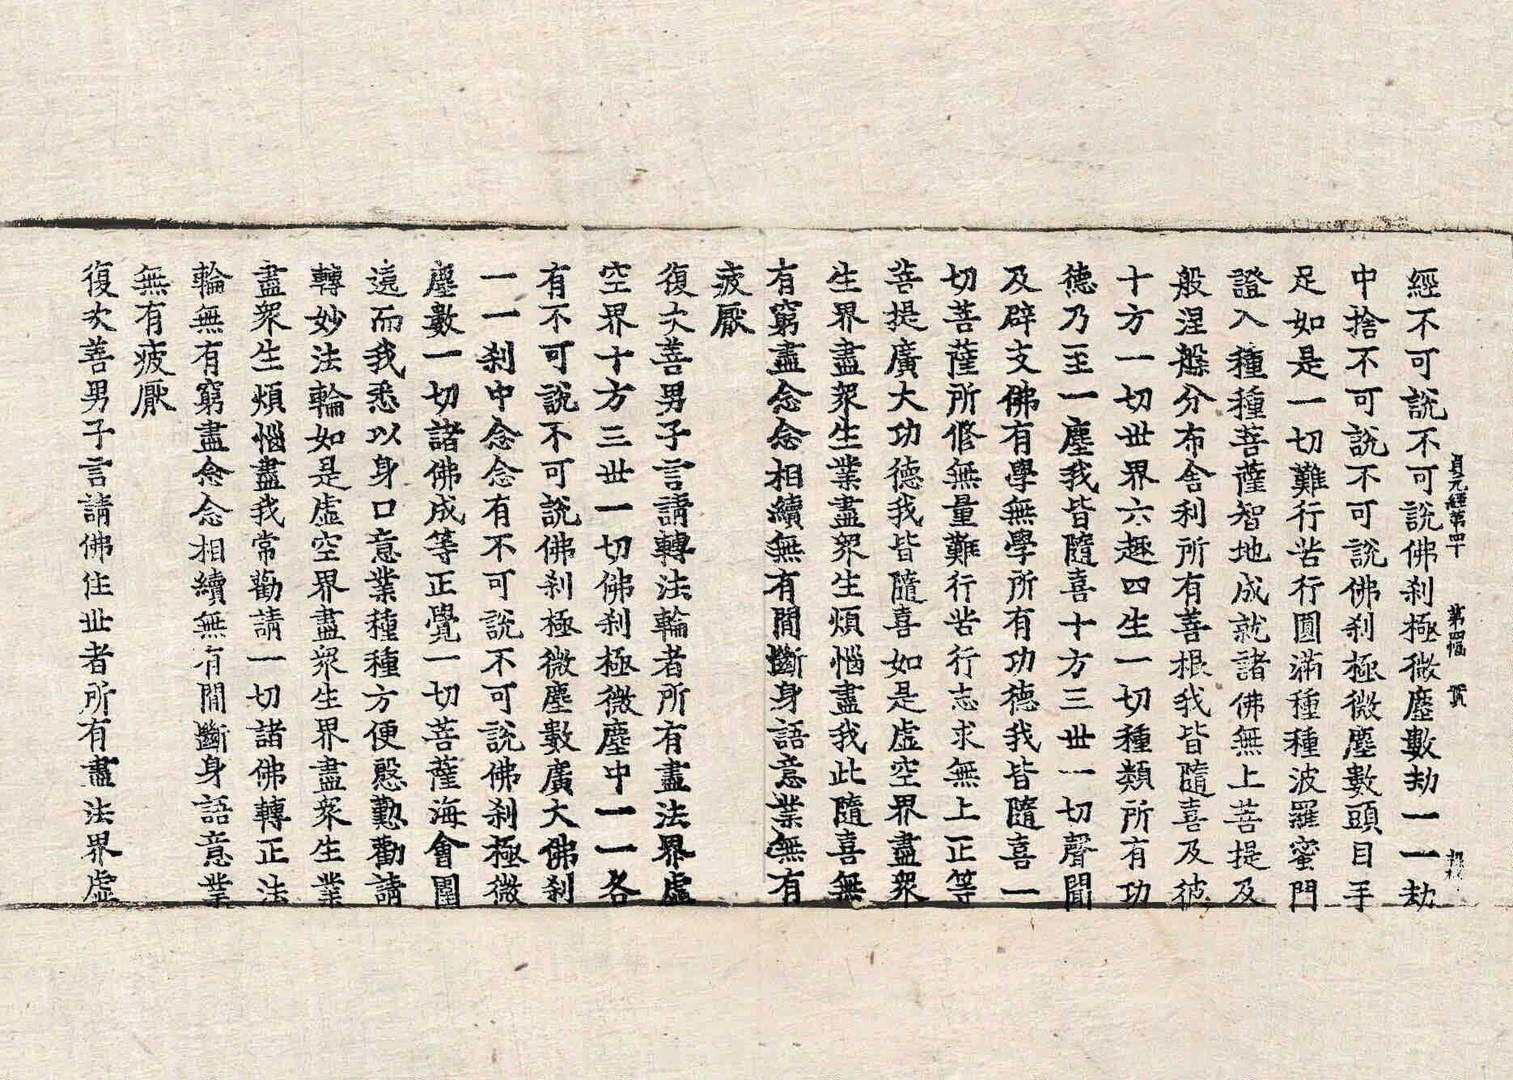 經不可說不可說佛刹極微塵數劫一一劫
貞元經第四十 第四幅 賓
中捨不可說不可說佛刹極微塵數頭目手
足如是一切難行苦行圓滿種種波羅蜜門
證入種種菩薩智地成就諸佛無上菩提及
般涅槃分布舍利所有善根我皆隨喜及彼
十方一切世界六趣四生一切種類所有功
德乃至一塵我皆隨喜十方三世一切聲聞
及辟支佛有學無學所有功德我皆隨喜一
切菩薩所修無量難行苦行志求無上正等
菩提廣大功德我皆隨喜如是虛空界盡衆
生界盡衆生業盡衆生煩惱盡我此隨喜無
有窮盡念念相續無有間斷身語意業無有
疲厭
復次善男子言請轉法輪者所有盡法界虛
空界十方三世一切佛刹極微塵中一一各
有不可說不可說佛刹極微塵數廣大佛刹
一一刹中念念有不可說不可說佛刹極微
塵數一切諸佛成等正覺一切菩薩海會圍
遶而我悉以身口意業種種方便慇懃勸請
轉妙法輪如是虛空界盡衆生界盡衆生業
盡衆生煩惱盡我常勸請一切諸佛轉正法
輪無有窮盡念念相續無有間斷身語意業
無有疲厭
復次善男子言請佛住世者所有盡法界虛